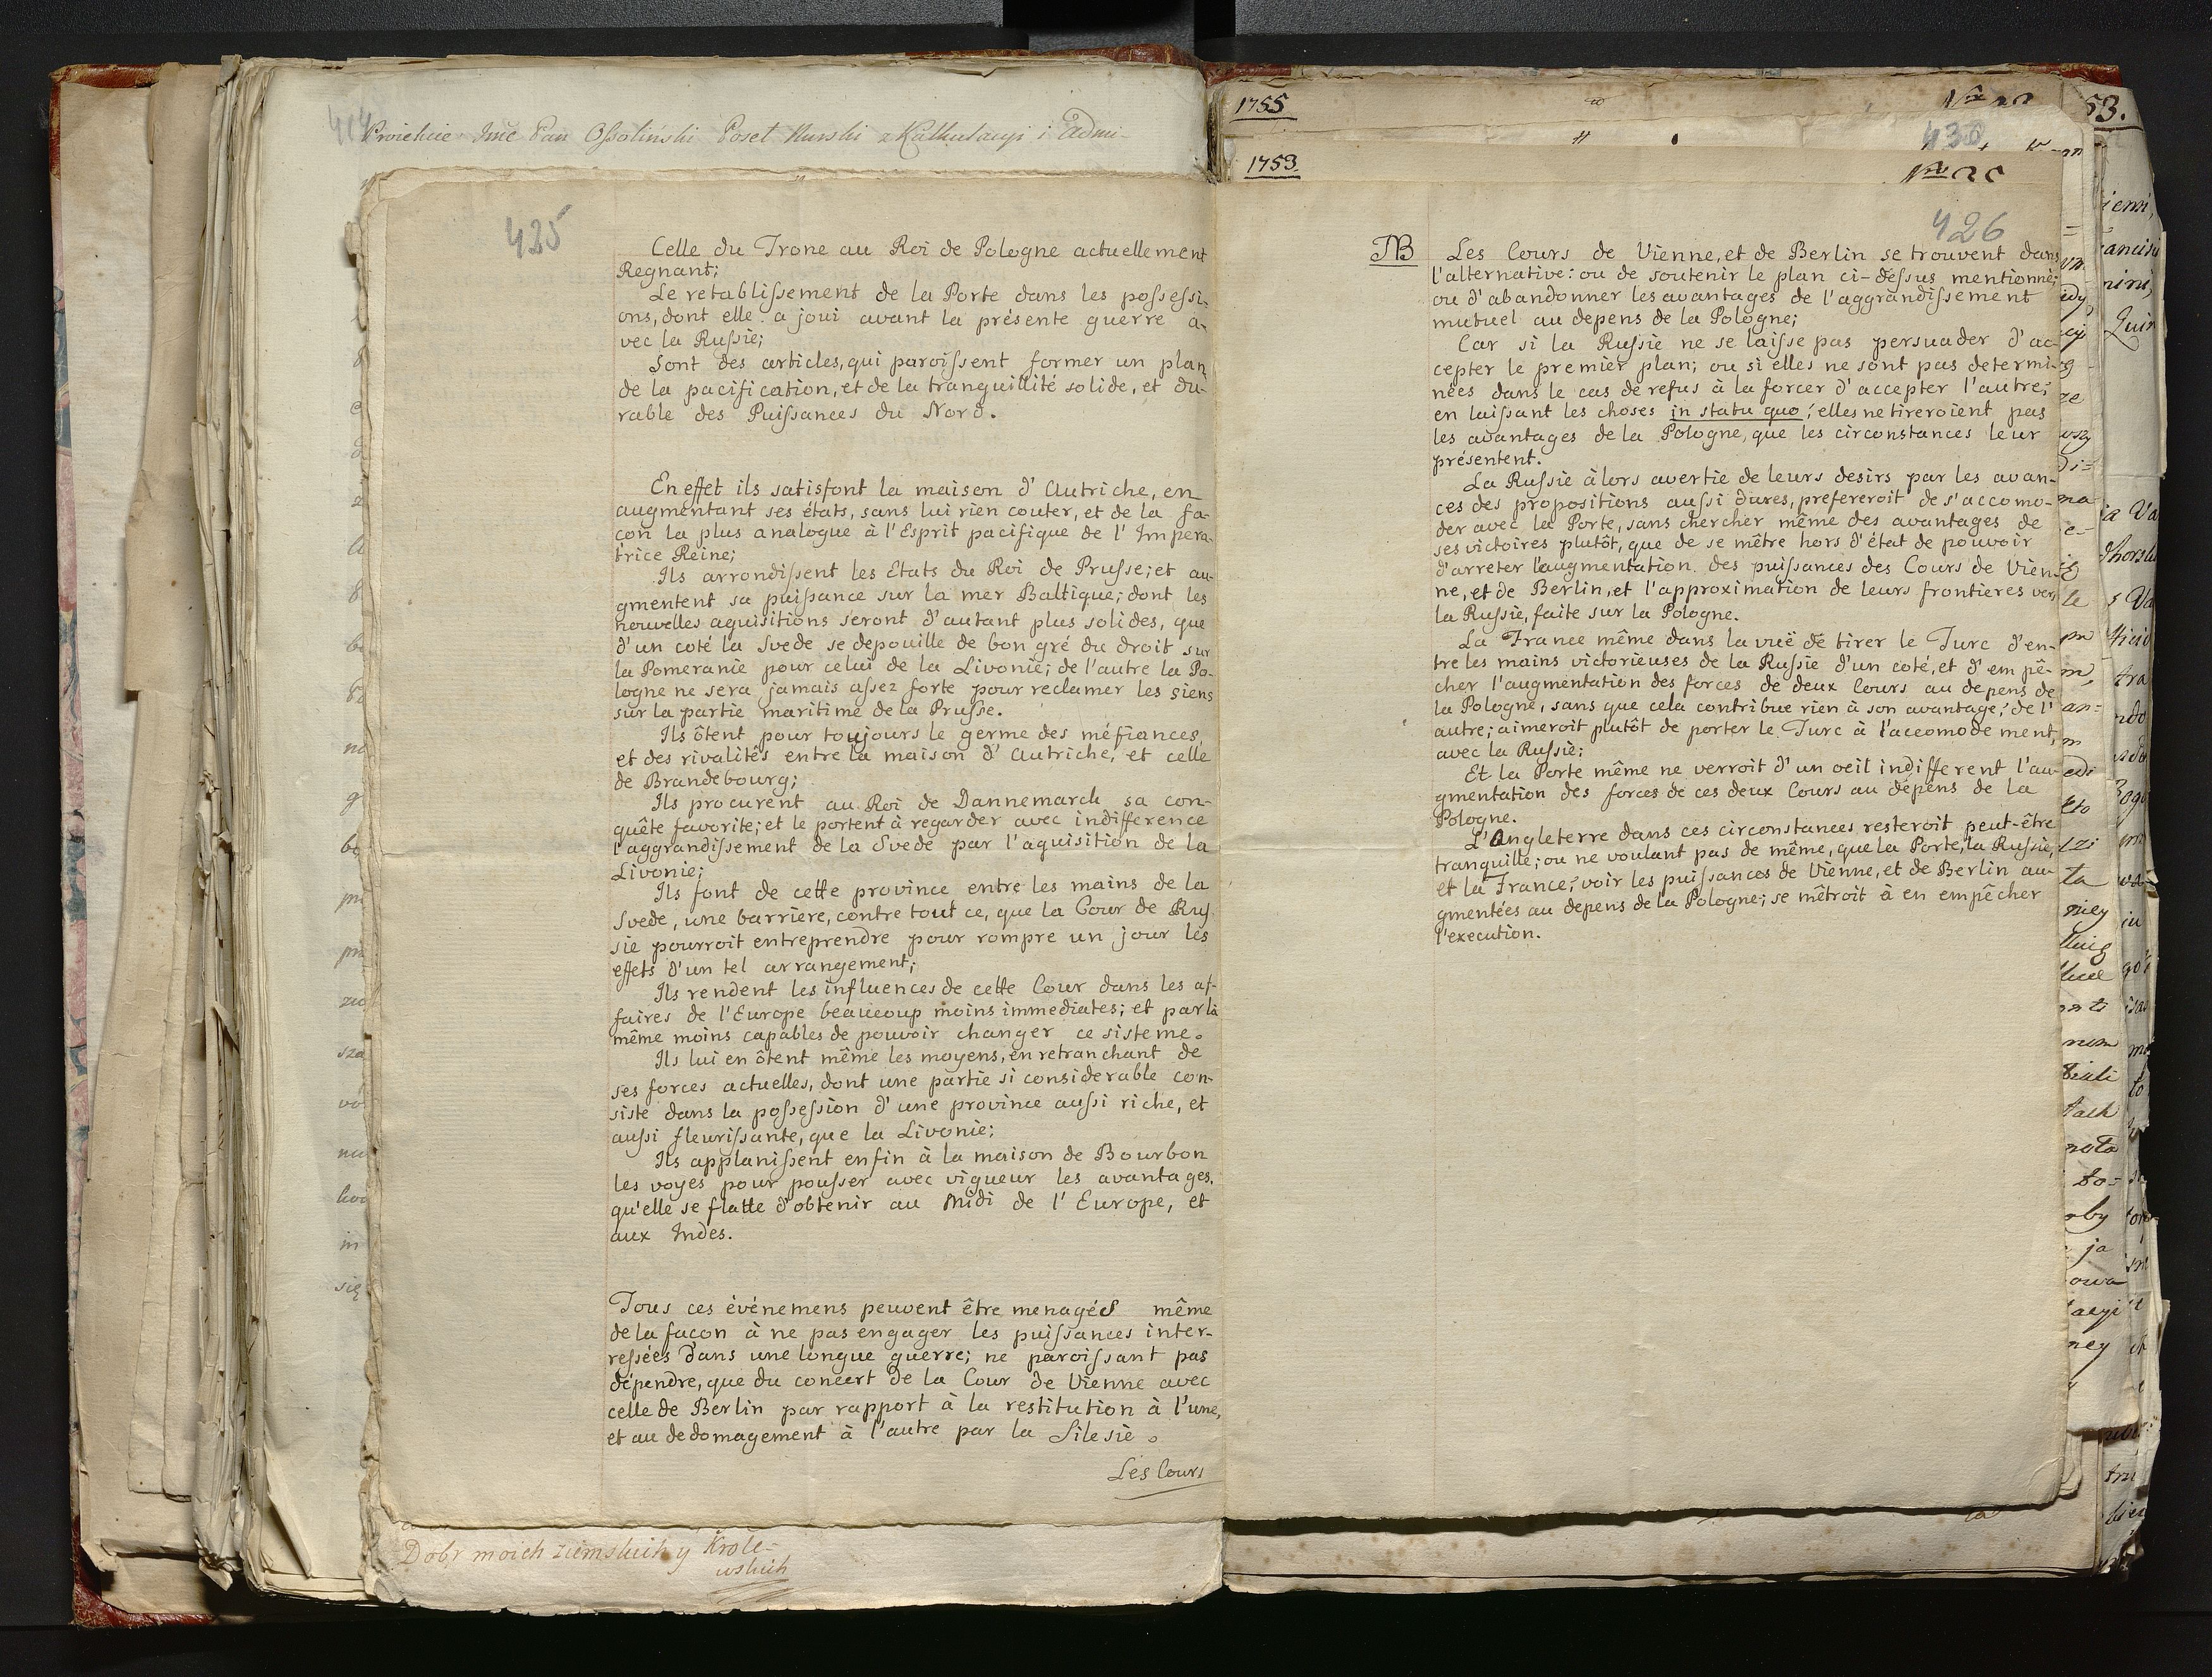 414
Proiekcie Imć Pan Ossoliński Poseł Nurski z Kalkulacyi i Admi-
425
Celle du Trone au Roi de Pologne actuellement
Regnant;
Le retablissement de la Porte dans les possessi-
ons, dont elle a joui avant la présente guerre a-
vec la Russie;
Sont des articles, qui paroissent former un plan
de la pacification, et de la tranquillité solide, et du-
rable des Puissances du Nord.
En effet ils satisfont la maison d'Autriche, en
augmentant ses états, sans lui rien couter, et de la fa-
çon la plus analogue à l'Esprit pacifique de l'Impera-
trice Reine;
Ils arrondissent les Etats du Roi de Prusse; et au-
gmentent sa puissance sur la mer Baltique; dont les
nouvelles aquisitions seront d'autant plus solides, que
d'un coté la Svede se depouille de bon gré du droit sur
la Pomeranie pour celui de la Livonie; de l'autre la Po-
logne ne sera jamais assez forte pour reclamer les siens
sur la partie maritime de la Prusse.
Ils ôtent pour toujours le germe des méfiances,
et des rivalités entre la maison d'Autriche, et celle
de Brandebourg;
Ils procurent au Roi de Dannemarck sa con-
quête favorite; et le portent à regarder avec indifference
l'aggrandissement de la Svede par l'aquisition de la
Livonie;
Ils font de cette province entre les mains de la
Svede, une barriere, contre tout ce, que la Cour de Rus-
sie pourroit entreprendre pour rompre un jour les
effets d'un tel arrangement;
Ils rendent les influences de cette Cour dans les af-
faires de l'Europe beaucoup moins immediates; et par là
même moins capables de pouvoir changer ce sisteme.
Ils lui en ôtent même les moyens, en retranchant de
ses forces actuelles, dont une partie si considerable con-
siste dans la possession d'une province aussi riche, et
aussi fleurissante, que la Livonie;
Ils applanissent enfin à la maison de Bourbon
les voyes pour pousser avec vigueur les avantages,
qu'elle se flatte d'obtenir au Midi de l'Europe, et
aux Indes.
Tous ces événemens peuvent être menagés même
de la façon à ne pas engager les puissances inter-
ressées dans une longue guerre; ne paroissant pas
dépendre, que du concert de la Cour de Vienne avec
celle de Berlin par rapport à la restitution à l'une,
et au dedomagement à l'autre par la Silesie.
Les Cours
Dobr moich ziemskich y Krole-
wskich
1755
430
1753
426
NB Les Cours de Vienne, et de Berlin se trouvent dans
l'alternative: ou de soutenir le plan ci-dessus mentionné;
ou d'abandonner les avantages de l'aggrandissement
mutuel au depens de la Pologne;
Car si la Russie ne se laisse pas persuader d'ac-
cepter le premier plan; ou si elles ne sont pas determi-
nées dans le cas de refus à la forcer d'accepter l'autre;
en laissant les choses in statu quo; elles ne tireroient pas
les avantages de la Pologne, que les circonstances leur
présentent.
La Russie àlors avertie de leurs desirs par les avan-
ces des propositions aussi dures, prefereroit de s'accomo-
der avec la Porte, sans chercher même des avantages de
ses victoires plutôt, que de se mêtre hors d'état de pouvoir
d'arreter l'augmentation des puissances des Cours de Vien-
ne, et de Berlin, et l'approximation de leurs frontieres vers
la Russie, faite sur la Pologne.
La France même dans la vuë de tirer le Turc d'en-
tre les mains victorieuses de la Russie d'un coté, et d'empê-
cher l'augmentation des forces de deux Cours au depens de
la Pologne, sans que cela contribue rien à son avantage, de l'
autre; aimeroit plutôt de porter le Turc à l'accomodement,
avec la Russie;
Et la Porte même ne verroit d'un oeil indifferent l'au-
gmentation des forces de ces deux Cours au dépens de la
Pologne.
L'Angleterre dans ces circonstances resteroit peut-être
tranquille; ou ne voulant pas de même, que la Porte, la Russie,
et la France, voir les puissances de Vienne, et de Berlin au-
gmentées au depens de la Pologne; se mêtroit à en empêcher
l'execution.
53.